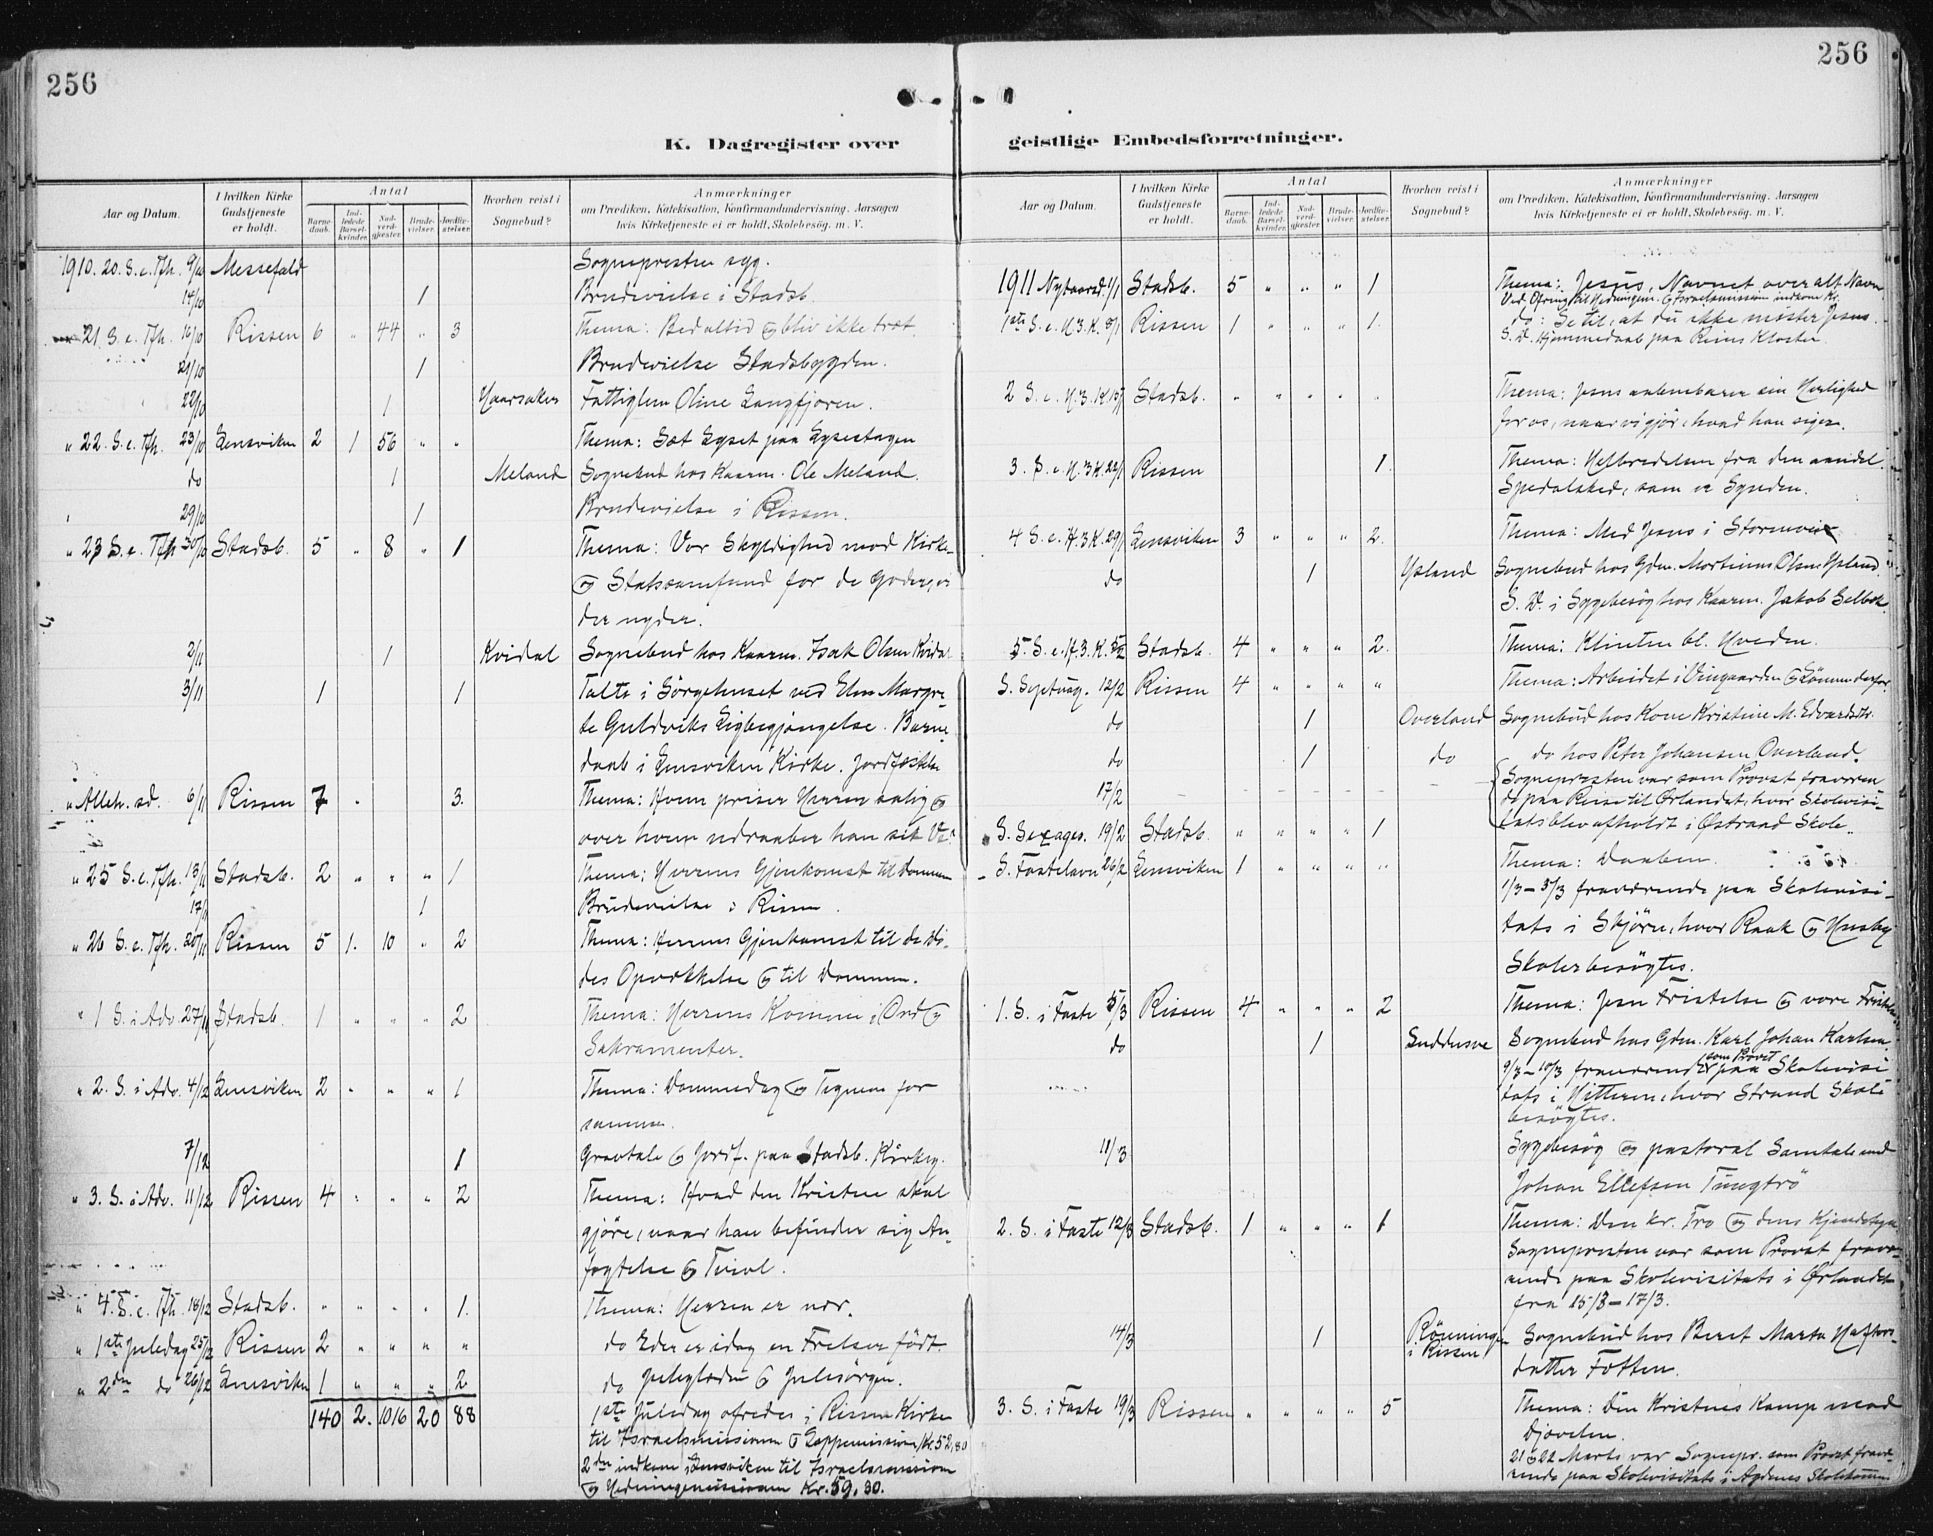 256
256
K. Dagregister over geistlige Embedsforretninger.
Aar og Datum.
I hvilken Kirke Gudstjeneste er holdt.
Antal
Barne-daab.
Ind-ledede Barsel-kvinder.
Nad-verd-gjester.
Brude-vielser.
Jordfæ-stelser.
Hvorhen reist i Sognebud?
Anmærkninger
om Prædiken, Katekisation, Konfirmandundervisning. Aarsagen
hvis Kirketjeneste ei er holdt, Skolebesøg. m. V.
1910. 20. S. e. Tfh. 9/10 Messefald Sognepresten syg.
14/10 1 Brudevielse i Stadsb.
21 S. e. Tfh. 16/10 Rissen 6 " 44 " 3 Thema: Bed altid og bliv ikke træt.
21/10 1 Brudevielse Stadsbygden.
22/10 1 Fattiglem Oline Langfjoren.
" 22. S. e. Tfh. 23/10 Lensviken 2 1 56 " " Thema: Sæt Lyset paa Lysestagen
do 1 Meland Sognebud hos Kaarm. Ole Meland.
29/10 1 Brudevielse i Rissen.
" 23 S. e. Tfh 30/10 Stadsb. 5 " 8 " 1 Thema: Vor Skyldighed mod Kirke-
og Statssamfund for de Goder, vi
der nyder.
2/11 1 Kvidal Sognebud hos Kaarm. Isak Olsen Kvidal
3/11 1 1 Talte i Sörgehuset ved Elen Margre-
te Guldviks Ligbegjængelse. Barne-
daab i Lensviken Kirke. Jordfæstelse
" Alleh. sd. 6/11 Rissen 7 " 3. Thema: Hvem priser Herren salig og
over hvem udraaber han sit Ve?
" 25 S. e. Tfh. 13/11 Stadsb. 2 " " " 1 Thema: Herrens Gjenkomst til Dommen
17/11 1 Brudevielse i Rissen.
" 26 S. e. Tfh. 20/11 Rissen 5 1. 10 " 2 Thema: Herrens Gjenkomst til de Dö-
des Opvækkelse og til Dommen.
" 1 S. i Adv. 27/11 Stadsb. 1 " " " 2 Thema: Herrens Komme i Ord og
Sakramenter.
" 2. S. i Adv. 4/12 Lensviken 2 " " " 1 Thema: Dommedag og Tegnene for
samme.
7/12 1 Gravtale og Jordf. paa Stadsb. Kirkeg.
" 3. S. i Adv. 11/12 Rissen 4 " " " 2 Thema: Hvad den Kristne skal
gjöre, naar han befinder sig An-
fægtelse og Tvivl.
" 4. S. e. Tfh. 18/12 Stadsb. " " " " 1. Thema: Herren er nær.
" 1ste Juledag 25/12 Rissen 2 " " " " do Eder er idag en Frelser födt.
" 2den do 26/12 Lensviken 1 " " " 2 do Juleglæden og Julesörgen.
140 2. 1016 20 88 1ste Juledag ofredes i Rissen Kirke
til Israelsmissionen og Lappemission Kr. 52,80
2den indkom i Lensviken til Israelsmission
og Hedningemissionen Kr. 59.30.
Aar og Datum.
I hvilken Kirke Gudstjeneste er holdt.
Antal
Barne-daab.
Ind-ledede Barsel-kvinder.
Nad-verd-gjester.
Brude-vielser.
Jordfæ-stelser.
Hvorhen reist i Sognebud?
Anmærkninger
om Prædiken, Katekisation, Konfirmandundervisning. Aarsagen
hvis Kirketjeneste ei er holdt, Skolebesøg. m. V.
1911 Nytaarsd. 1/1 Stadsb. 5 " " " 1 Thema: Jesus, Navnet over alt Navn
Ved Ofring til Hedningem. og Israelsmission indkom Kr.
1ste S. e. H.3.K. 8/1 Rissen 1 " " " 1. do: Se til, at du ikke mister Jesus.
S. D. Hjemmedaab paa Reins Kloster.
2 S. e. H. 3. K. 15/1 Stadsb. " " " " " Thema: Jesus aabenbarer sin Herlighed
for os, naar vi gjör, hvad han siger.
3. S. e. H. 3 K. 22/1 Rissen 1. Thema: Helbredelsen fra den aandel.
Spedalsked, som er Synden.
4 S. e. H. 3 K. 29/1 Lensviken 3 " " " 2. Thema: Med Jesus i Stormveir
do 1 Sognebud hos Gdm.
S. D. i Sygebesög hos Kaarm. Jakob Selbæk
5. S. e. H. 3. K. 5/2 Stadsb. 4 " " " 2. Thema: Klinten bl. Hveden.
S. Septuag. 12/2 Rissen 4 " " " " Thema: Arbeidet i Vingaarden og Lönnen derfor
do 1 Overland Sognebud hos Kone Kristine M. Edvardsdtr.
do 1 do do hos Peter Johansen Overland.
17/2 Sognepresten var som Provst fraværen-
de paa Reise til Ørlandet, hvor Skolevisi-
tats blev afholdt i Østraad Skole.
S. Sexages. 19/2 Stadsb. " " " " 1
S. Fastelavn 26/2 Lensviken 1 " " " " Thema: Daaben.
1/3 – 3/3 fraværende paa Skolevisi-
tats i Skjörn, hvor Raak og Husby
Skoler besögtes.
1. S. i Faste 5/3 Rissen 4 " " " 2 Thema: Jesu Fristelse og vore Fristelser
do 1 Sognebud hos Gdm. Karl Johan Karlsen
9/3 – 10/3 fraværende som Provst paa Skolevisi-
tats i Hitteren, hvor Strand Skole
besögtes.
11/3 Sygebesög og pastoral Samtale med
Johan Ellefsen Tungtrö
2. S. i Faste 12/3 Stadsb. 1 " " " 1 Thema: Den kr. Tro og dens Kjendetegn
Sognepresten var som Provst fravæ-
rende paa Skolevisitats i Ørlandet
fra 15/3 – 17/3.
14/3 1 Rönningen i Rissen Sognebud hos Beret Marta
datter Fotten.
3. S. i Faste 19/3 Rissen " " " " 5 Thema: Den Kristnes Kamp mod
Djævelen.
21 og 22 Marts var Sognepr. som Provst fravæ-
rende paa Skolevisitats i Agdenes Skolekomm.